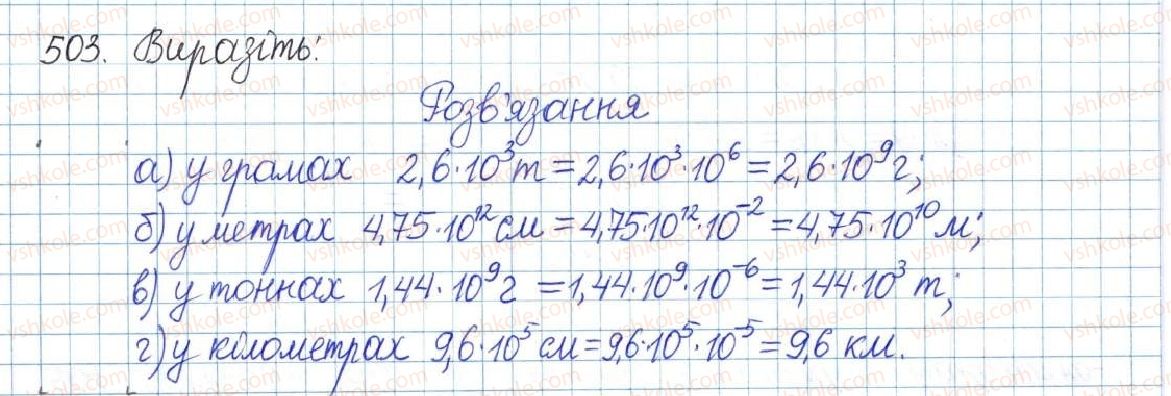 503. Виразіть:
Розв'язання
а) у грамах 2,6·10³т = 2,6·10³·10⁶ = 2,6·10⁹г;
б) у метрах 4,75·10¹²см = 4,75·10¹²·10⁻² = 4,75·10¹⁰м;
в) у тоннах 1,44·10⁹г = 1,44·10⁹·10⁻⁶ = 1,44·10³ т;
г) у кілометрах 9,6·10⁵см = 9,6·10⁵·10⁻⁵ = 9,6 км.
vshkole.com